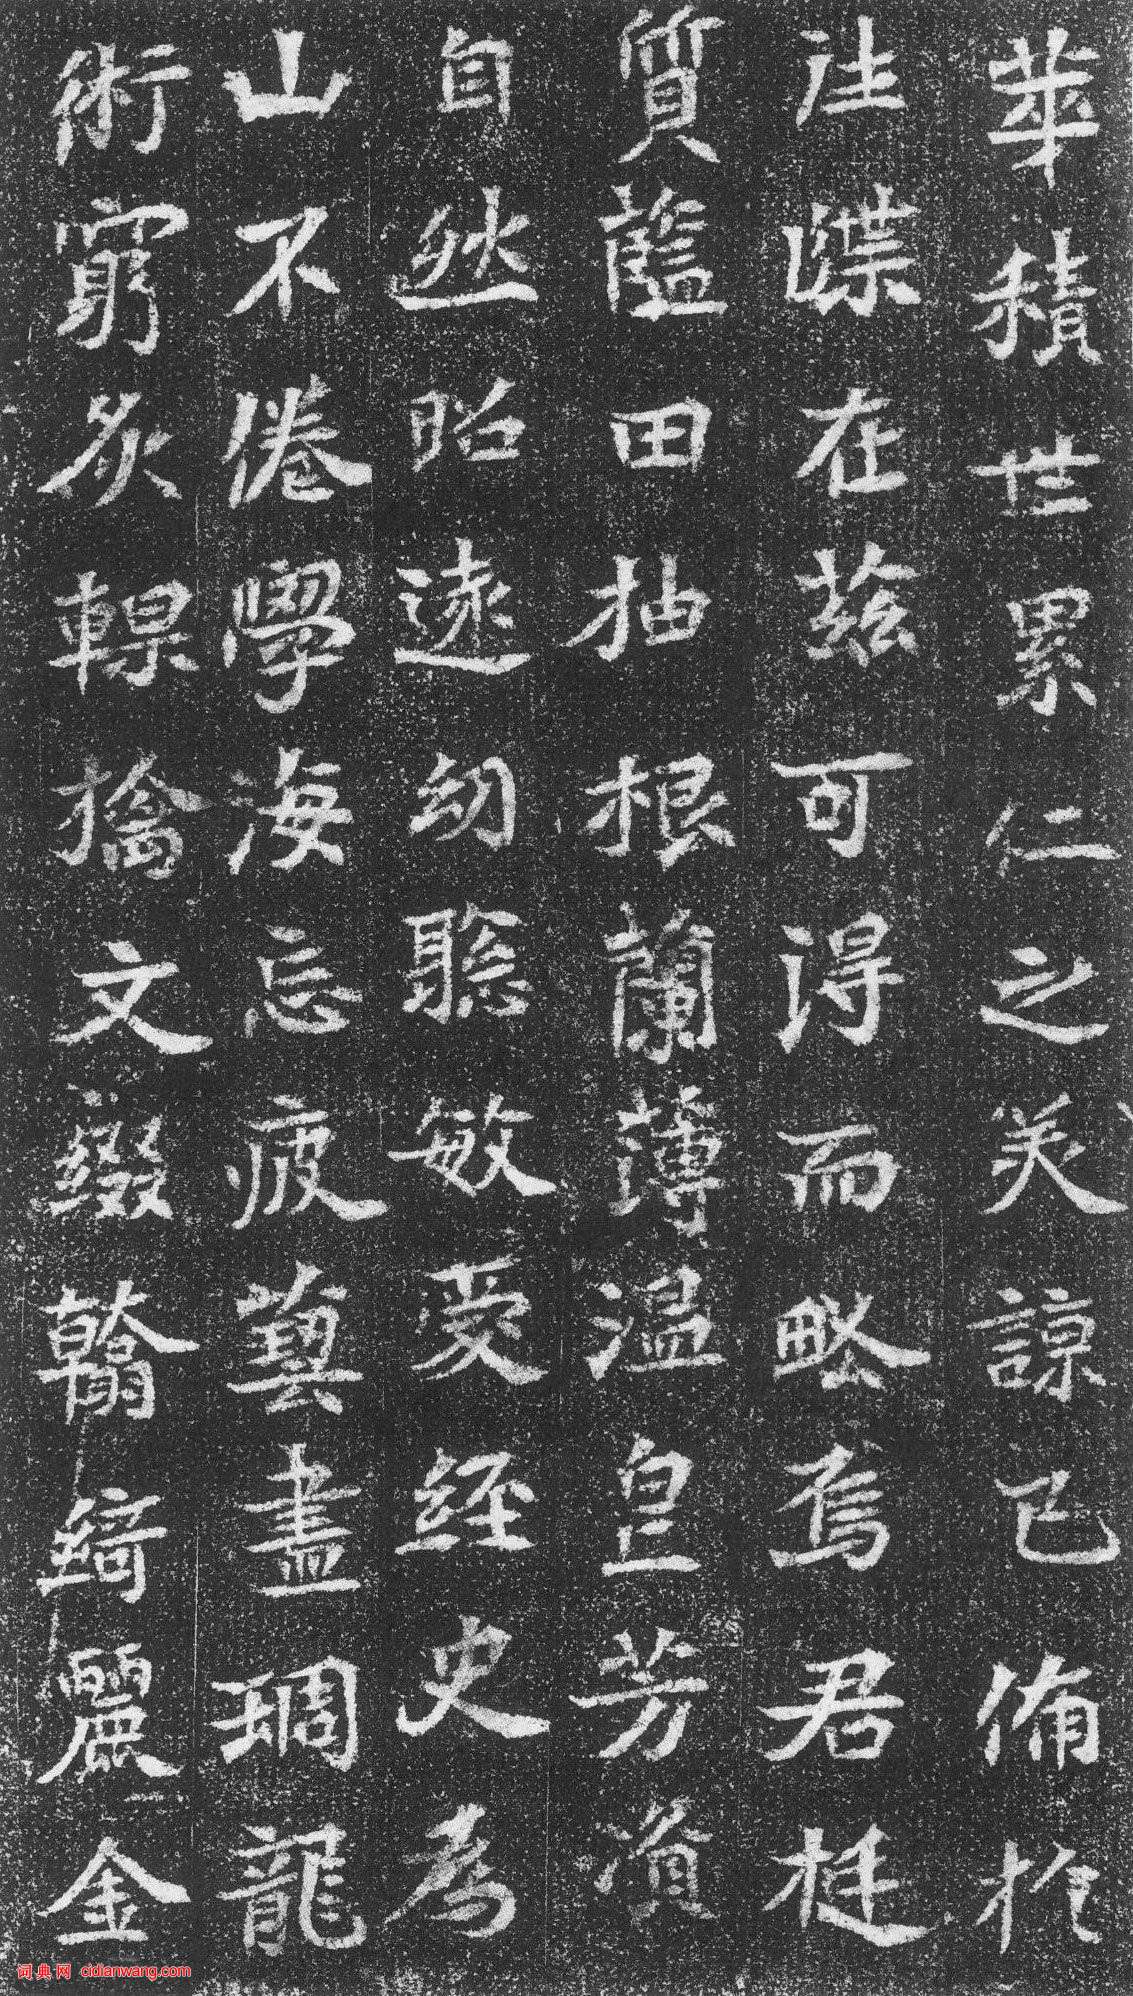 華積世累仁之美諒已備扵
往諜在茲可得而略焉君挺
質藍田抽根蘭薄温皇芳資
自然昭遠幼聡敏愛經史為
山不倦學海忘疲藝盡琱龍
術窮炙輠摛文綴翰綺麗金
词典网 cidianwang.com